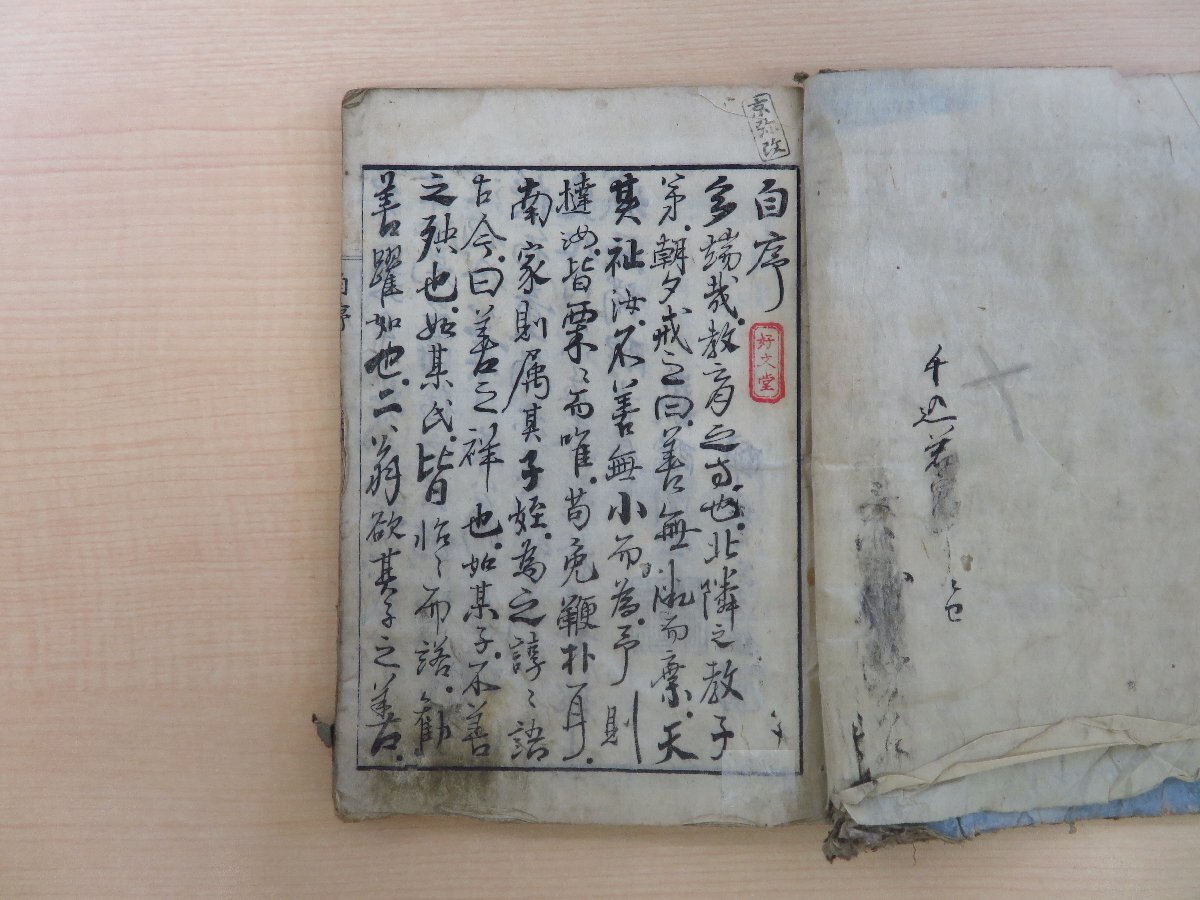 自序
好文堂
多端哉。教育之方也。北隣之教子
弟。朝夕戒之曰。善無微而棄。天
其祉汝。不善無小而為。予則
撻汝。皆栗〻而唯。苟免鞭朴耳。
南家則属其子姪。為之諄〻語
古今。曰善之祥也。如某子。不善
之殃也。如某氏。皆怡〻而諾。勧
善躍如也。二翁欲其子之善。